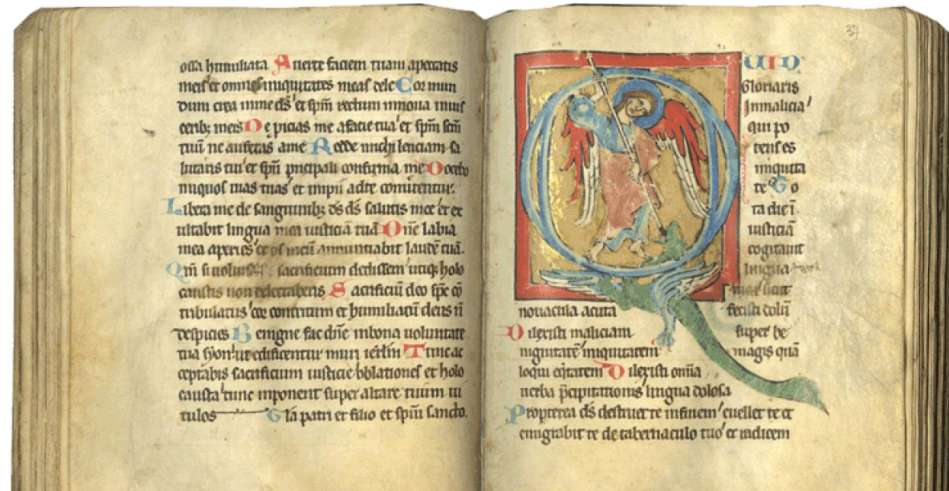 ossa humiliata Auerte faciem tuam apeccatis
meis et omnes iniquitates meas dele Cor mun
dum crea inme ds et spm rectum innoua inuis
ceribz meis De picias me afacie tua et spm scm
tuu ne auferas ame Redde michi leticiam sa
lutaris tui et spu pncipali confirma me Docebo
iniquos uias tuas et impii adte conuertentur
Libera me de sanguinibz ds ds salutis mee et ex
ultabit lingua mea iusticia tua Dne labia
mea aperies et os meu annuntiabit laude tua
Qm si uoluisses sacrificium dedissem utiqz holo
caustis non delectaberis Sacrificiu deo sps co
tribulatus cor contritum et humiliatu deus n
despicies Benigne fac dne inbona uoluntate
tua syon ut edificentur muri ierlm Tunc ac
ceptabis sacrificium iusticie oblationes et holo
causta tunc inponent super altare tuum ui
tulos Gla patri et filio et spui sancto.
37
QUID
Gloriaris
Inmalicia
qui po
tens es
iniquita
te To
ta die i
iusticia
cogitauit
lingua
tua sicut
nouacula acuta fecisti dolu
Dilexisti maliciam super be
nignitate iniquitatem magis qua
loqui eqtatem Dilexisti omia
uerba pcipitationis lingua dolosa
Propterea ds destruet te infinem euellet te et
emigrabit te de tabernaculo tuo et radicem